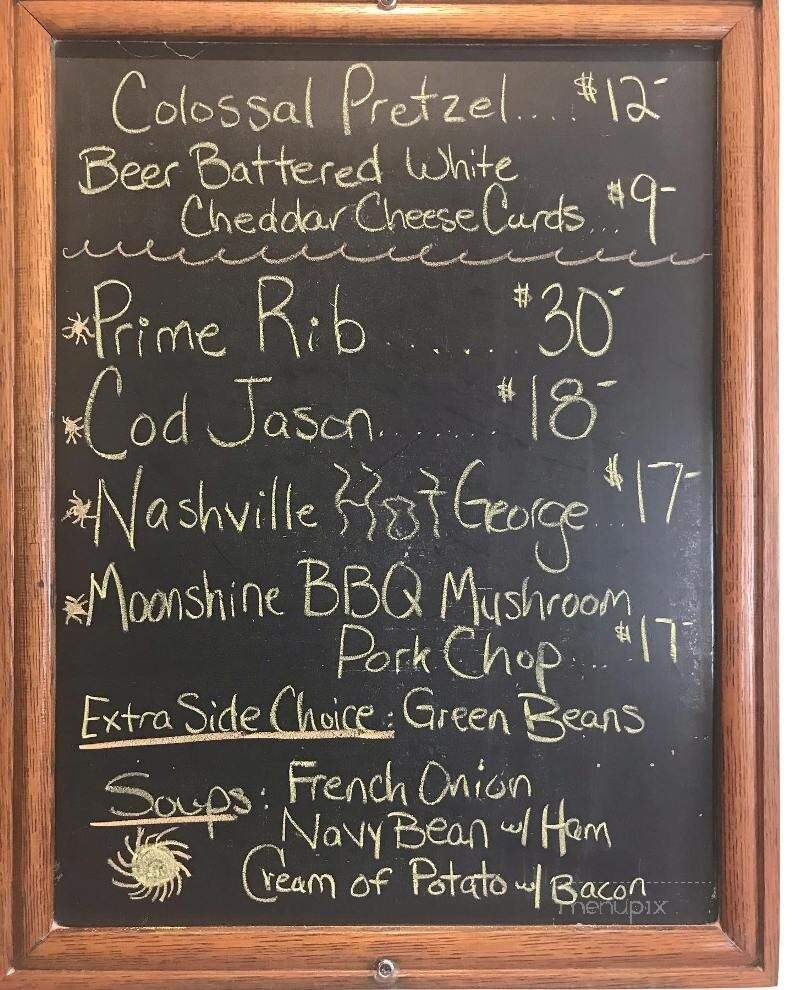 Colossal Pretzel.... $12-
Beer Battered White
Cheddar Cheese Curds... $9-
*Prime Rib...... $30-
*Cod Jason....... $18-
*Nashville Hot George... $17-
*Moonshine BBQ Mushroom
Pork Chop.... $17-
Extra Side Choice: Green Beans
Soups: French Onion
Navy Bean w/ Ham
Cream of Potato w/ Bacon
menupix